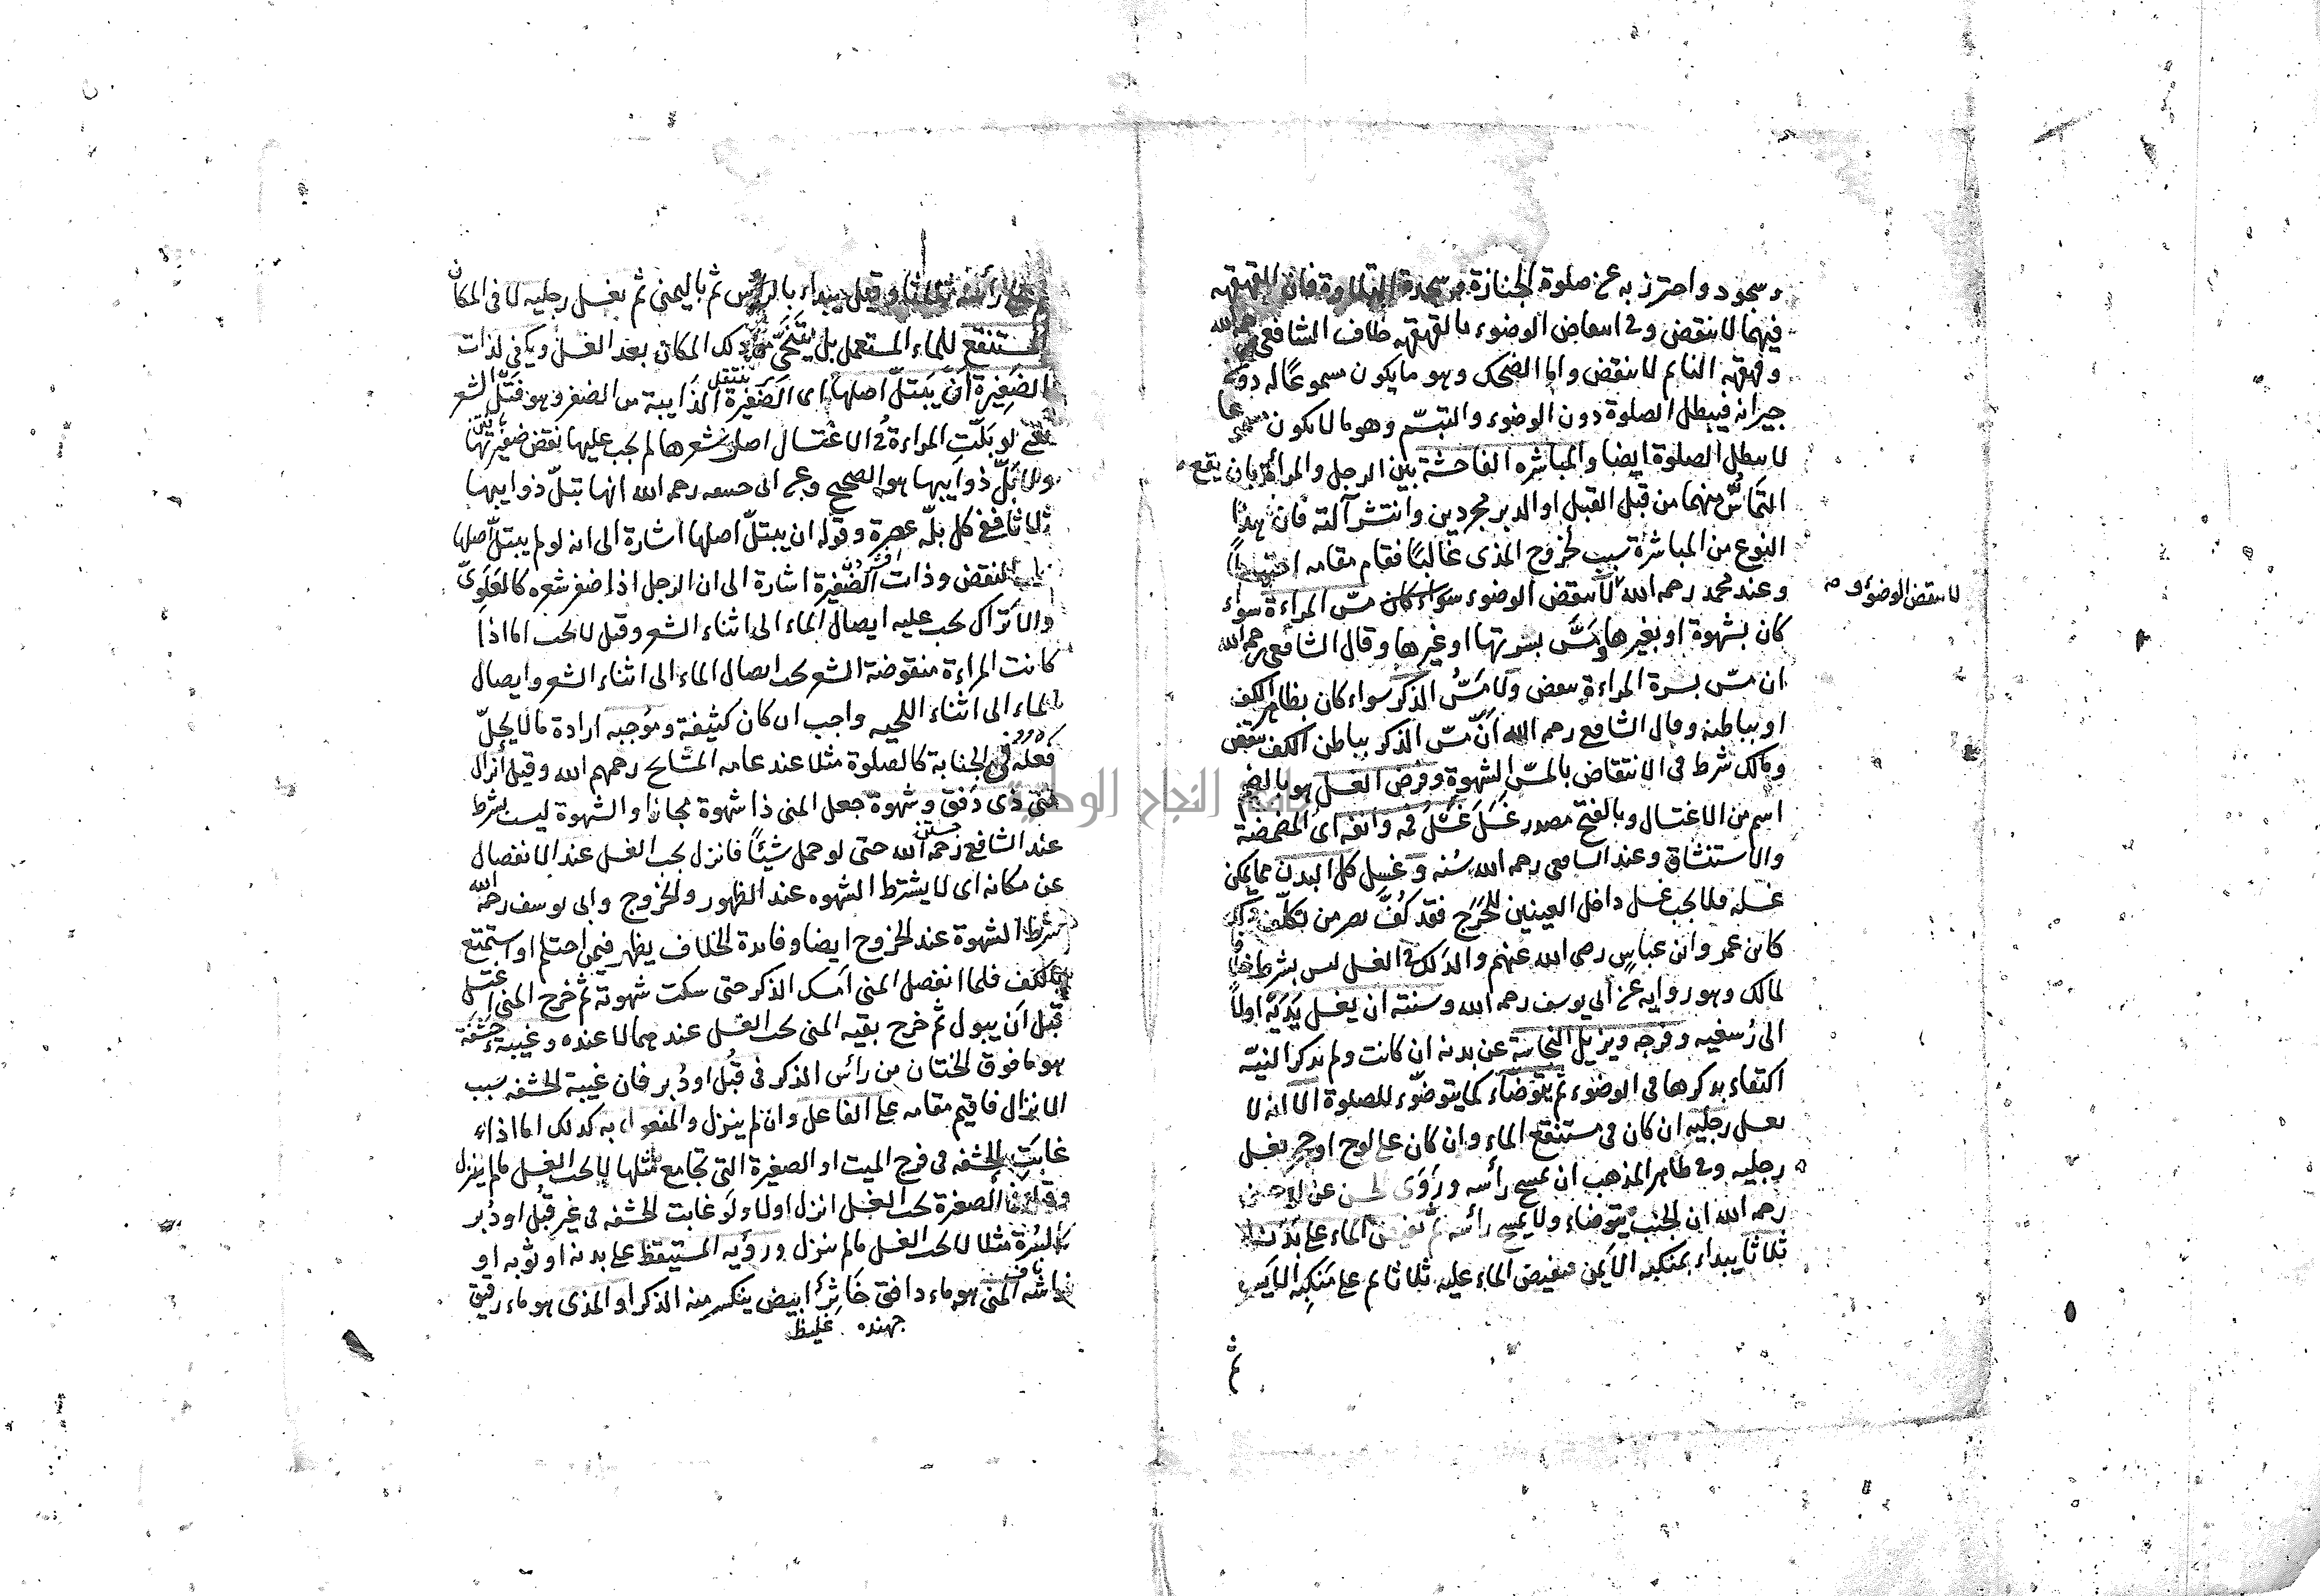 وسجود واحترز به عن صلوة الجنازة وسجدة التلاوة فان القهقهه
فيهما لا ينقض وفى انتقاض الوضوء بالقهقهه خلاف الشافعى رحمه الله
وقهقهه النائم لا ينقض واما الضحك وهو ما يكون مسموعًا له دون
جيرانه فيبطل الصلوة دون الوضوء والتبسّم وهو ما لا يكون مسموعا
لا يبطل الصلوة ايضا والمباشره الفاحشة بين الرجل والمراة بان يقع
التماسّ منهما من قبل القبل او الدبر مجردين وانتشر آلته فان هذا
النوع من المباشرة سبب لخروج المذى غالبًا فقام مقامه احتياطا
وعند محمد رحمه الله لا ينقض الوضوء سواء كان مسّ المراءة سواء
لا ينقض الوضوء و
كان بشهوة او بغيرها ومسّ بشرتها او غيرها وقال الشافعى رحمه الله
ان مسّ بشرة المراءة ينقض ولا مَسُّ الذكر سواء كان بظاهر الكف
او بباطنه وقال الشافعى رحمه الله اَنّ مسّ الذكر بباطن الكف ينقض
ومالك شرط فى الانتقاض بالمسّ الشهوة وفرض الغسل هو بالضم
اسم من الاغتسال وبالفتح مصدر غَسَلَ غَسْلَ فمه وانفه اى المضمضة
والاستنشاق وعند الشافعى رحمه الله سُنه وغسل كل البدن مما يمكن
غسله فلا يجب غسل داخل العينين للحَرَج فقد كُفَّ بصر من تكلّف ذلك
كابن عمر وابن عباس رضى الله عنهم والدلك فى الغسل ليس بشرط خلافا
لمالك وهو رواية عن ابى يوسف رحمه الله وسنته ان يغسل يَدَيْه اولاً
الى رُسغيه وفرجه ويزيل النجاسة عن بدنه ان كانت ولم يذكر النيّة
اكتفاء بذكرها فى الوضوء ثم يتوضّاء كما يتوضّوء للصلوة الا انه لا
يغسل رجليه ان كان فى مستنقع الماء وان كان على لوح او حجر يغسل
رجليه وفى ظاهر المذهب ان يمسح رأسه ورَوَى الحسن عن ابى حنيفة
رحمه الله ان الجنب يتوضاء ولا يمسح رأسه ثم يفيض الماء على بدنه
ثلاثا يبداء بمنكبه الايمن فيفيض الماء عليه ثلاثا ثم على مَنكِبه الايسر
ثم
على رأسه ثلاثا وقيل يبداء بالرأس ثم باليمنى ثم يغسل رجليه لا فى المكان
المستنقع للماء المستعمل بل يَتَنَحَّى عن ذلك المكان بعد الغسل ويكفى لذات
ينتقل
الضَفِيْرة اَنْ يَبتلّ اصلها اى الضَفِيْرة الذَايبة من الضفر وهو فَتْلُ الشعر
يعنى لو بَلَّتِ المراءة فى الاغتسال اصل شعرها لم يجب عليها نقض ضفيرتها
ولا بَلُّ ذوايبها هو الصحيح وعن ابى حنيفه رحمه الله انها تبلّ ذوايبها
ثلاثا فى كل بلّه عصرة وقوله ان يبتلّ اصلها اشارة الى انه لو لم يبتلّ اصلها
يجب النقض وذات الضَّفِيرة اشارة الى ان الرجل اذا ضفر شعره كالعَلَوِىّ
والاَتْراك يجب عليه ايصال الماء الى اثناء الشعر وقيل لا يجب اما اذا
كانت المراءة منقوضة الشعر يجب ايصال الماء الى اثناء الشعر وايصال
الماء الى اثناء اللحيه واجب ان كان كثيفة ومُوجبه ارادة ما لا يحِلّ
فعله فى الجنابة كالصلوة مثلا عند عامه المشايخ رحمهم الله وقيل انزال
منى ذى دَفق وشهوة جعل المنى ذا شهوة مجازا والشهوة ليست بشرط
عند الشافعى رحمه الله حتى لو حمل شيئًا فانزل يجب الغسل عند الانفصال
عن مكانه اى لا يشترط الشهوه عند الظهور والخروج وابى يوسف رحمه الله
شرط الشهوة عند الخروج ايضا وفايدة الخلاف يظهر فيمن احتلم او استمتع
بالكف فلما انفصل المنى اَمسك الذكر حتى سكت شهوته ثم خرج المنى اغتسل
قبل اَن يبول ثم خرج بقيه المنى يجب الغسل عندهما لا عنده وغيبة حَشَفَة
هو ما فوق الختان من رأس الذكر فى قُبُل او دُبر فان غيبة الحشفه سبب
الانزال فاقيم مقامه على الفاعل وان لم ينزل والمفعول به كذلك اما اذا
غابَتِ الحشفه فى فرج الميت او الصغيرة التى تجامع مثلها لا يجب الغسل ما لم ينزل
وقيل فى الصغيرة يجب الغسل انزل اولا ولَو غابت الحشفه فى غير قُبُل او دُبر
كالسُرة مثلا لا يجب الغسل ما لم ينزل ورؤيه المستيقظ على بدنه او ثوبه او
فراشه المنى هو ماء دافق خَاثِرٌ ابيض ينكسر منه الذكر او المذى هو ماء رقيق
جهنده غليظ
جامعة النجاح الوطنية